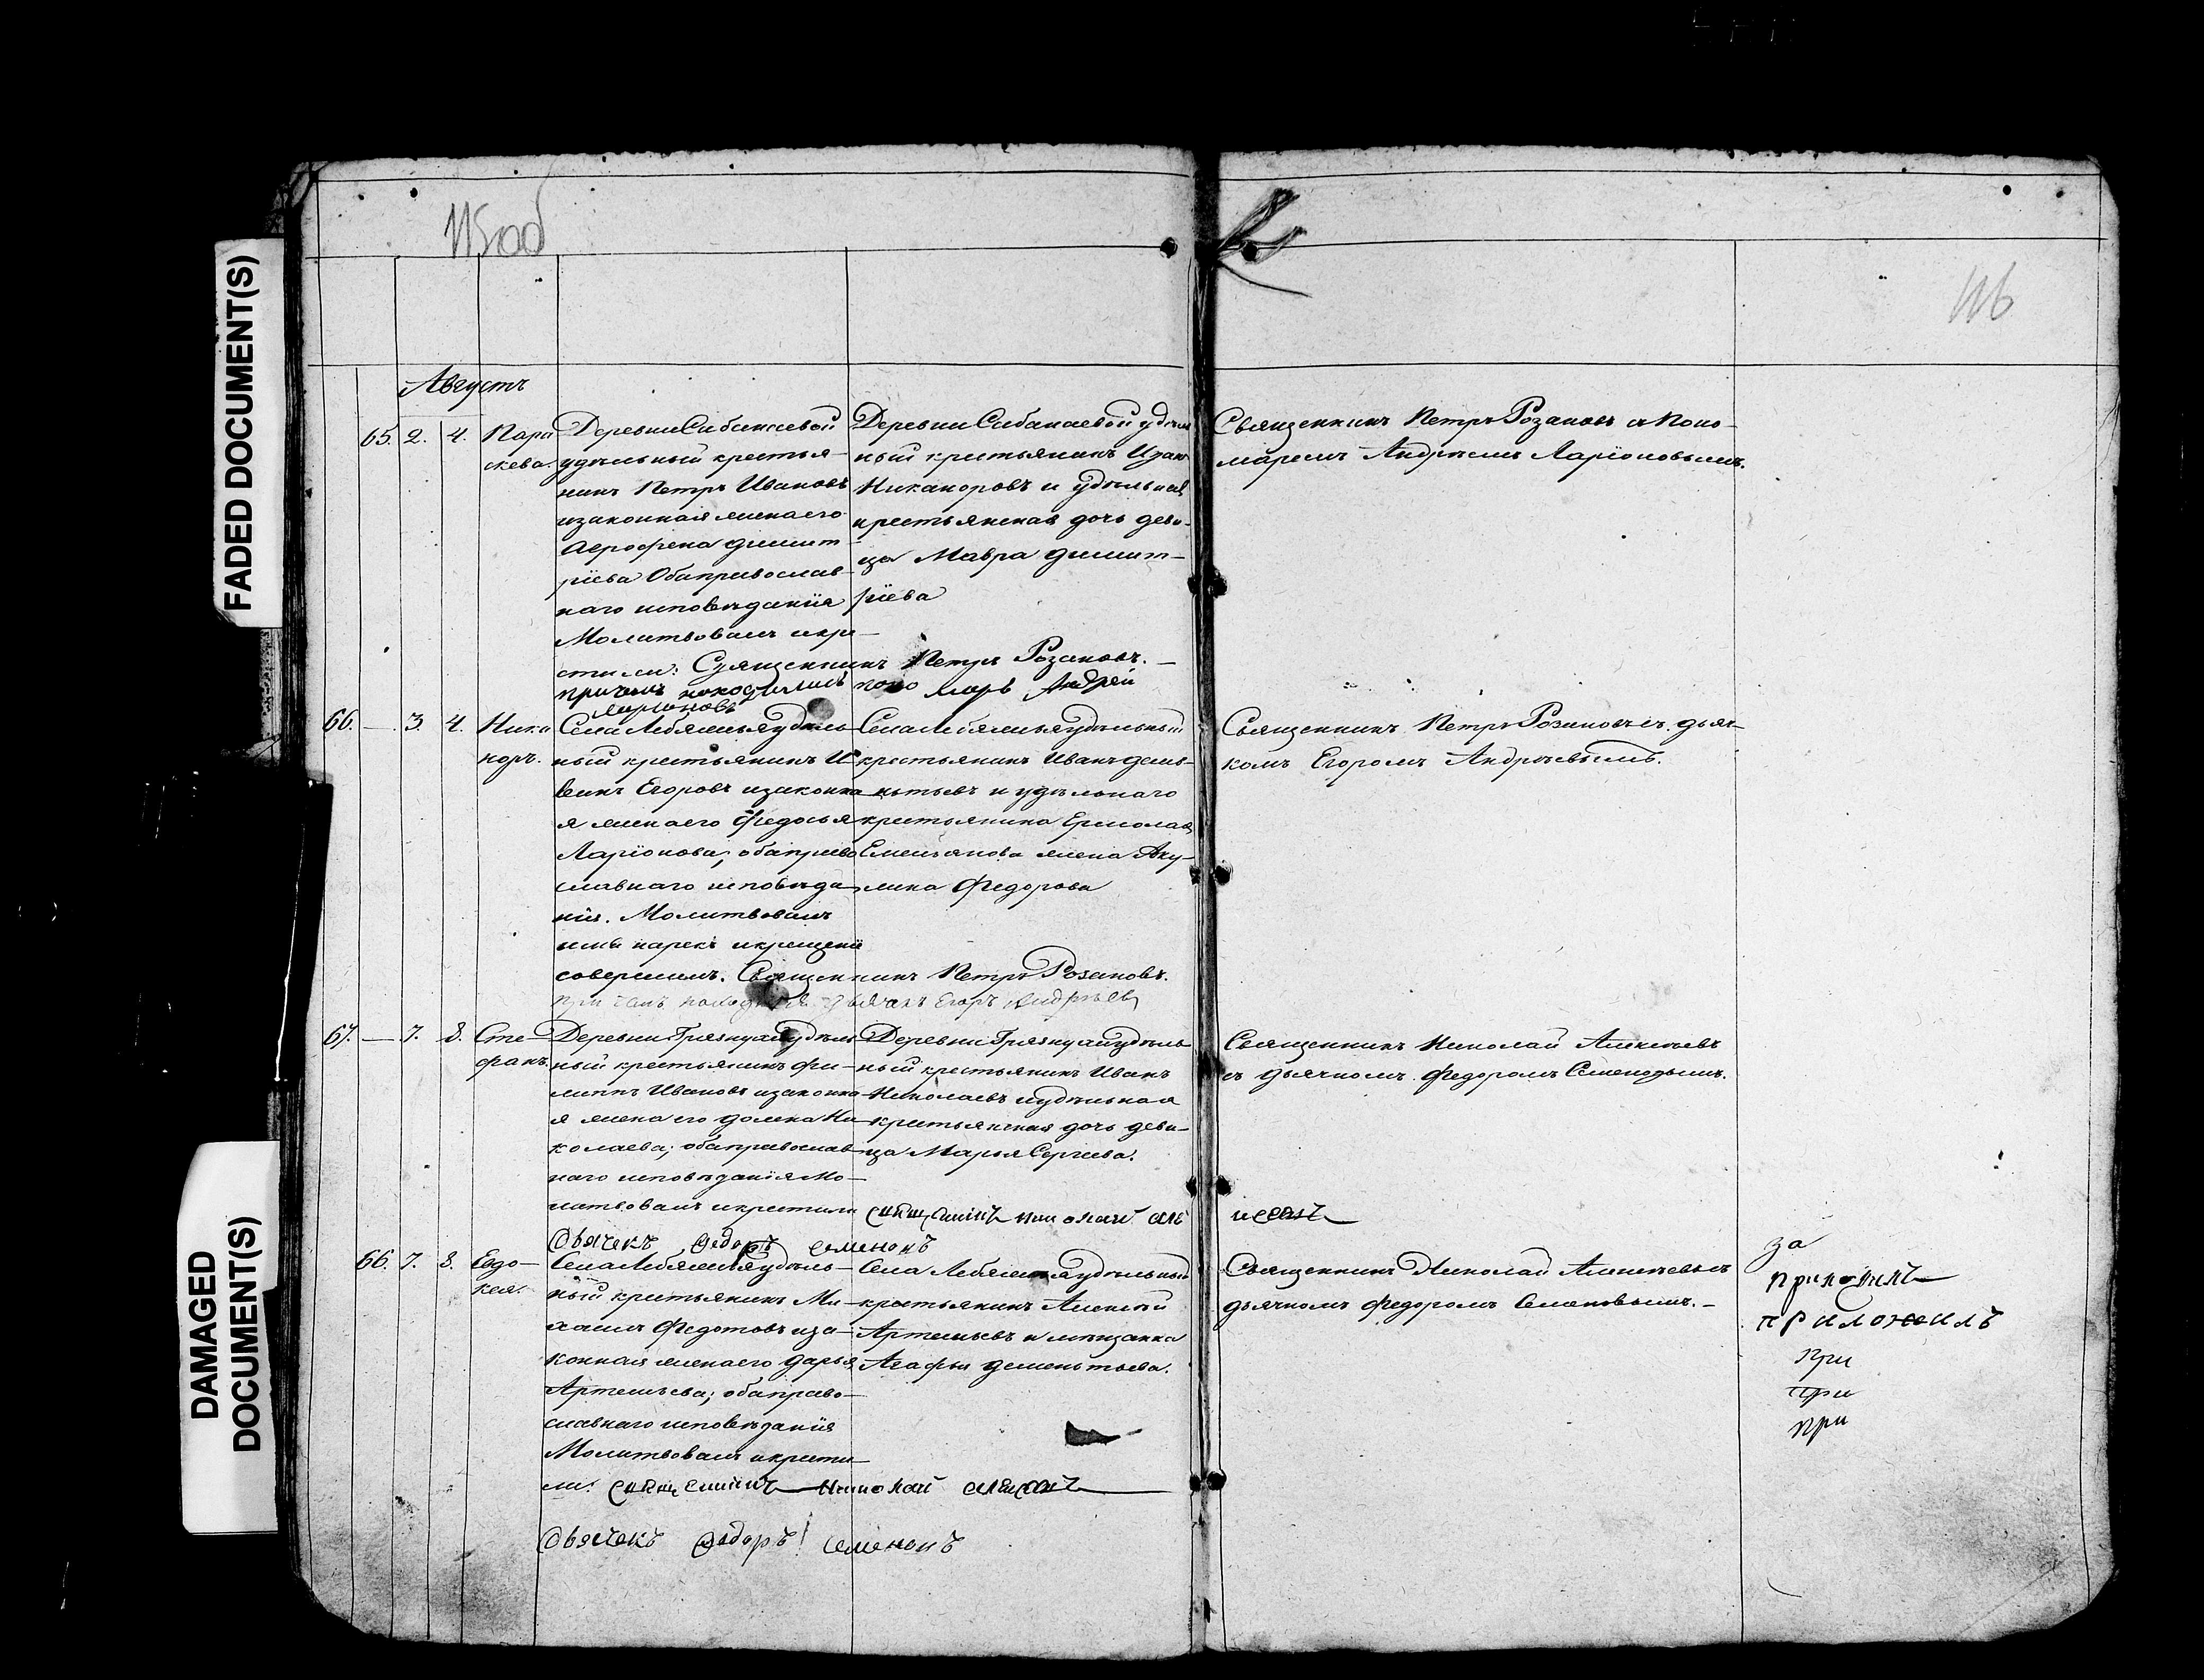 FADED DOCUMENT(S)
DAMAGED
DOCUMENT(S)
115об
116
Августъ
65. 2. 4. Пара
скева.
Деревни Сабанаевой
удѣльный крестья-
нинъ Петръ Ивановъ
изаконная женаего
Агрофена димит
рїева Обаправослав-
наго исповѣданїя
Молитвовалъ икре-
стили: Священникъ Петръ Розановъ.
причемъ находился поно марь Андрей
Ларионовъ
Деревни Сабанаевой удѣль
ный крестьянинъ
Никаноровъ и удѣльная
крестьянская дочь деви-
ца Мавра димит-
рїева
Священникъ Петръ Розановъ с Поно-
маремъ Андрѣемъ Ларїоновымъ.
66. — 3. 4. Ника
норъ.
Села Лебяжья удѣль-
ный крестьянинъ И
Егоровъ изаконна
я женаего Федосья
Ларїонова; обаправо
славнаго исповѣда-
нїя. Молитвовалъ
имя нарекъ икрещенїе
совершилъ. Священникъ Петръ Розановъ.
при чемъ находился дьячекъ Егоръ Андрѣевъ
Села Лебяжья удѣльный
крестьянинъ Иванъ демь-
нтьевъ и удѣльнаго
крестьянина Ермолая
Емельянова жена Аку-
лина Федорова
Священникъ Петръ Розановъ съ дьяч-
комъ Егоромъ Андрѣевымъ.
67. — 7. 8. Сте-
фанъ.
Деревни Грязнухи удѣль
ный крестьянинъ Фи-
липпъ Ивановъ изаконна
я жена его домна Ни
колаева; обаправослав
наго исповѣданїя Мо-
литвовалъ икрестили
Деревни Грязнухи удѣль
ный крестьянинъ Иванъ
Николаевъ иудѣльная
крестьянская дочь деви-
ца Марья Сергѣева.
Священникъ Николай Алексѣевъ
съ дьячкомъ Федоромъ Семеновымъ.
Дьячекъ Федоръ Семеновъ
66. 7. 8. Евдо-
кея.
Села Лебяжья удѣль-
ный крестьянинъ Ми-
хаилъ Федотовъ иза-
конная женаего дарья
Артемьева; обаправо-
славнаго исповѣданїя
Молитвовалъ икрести-
ли. Священникъ Николай Алексѣевъ
Дьячекъ Федоръ Семеновъ
Села Лебяжья удѣльный
крестьянинъ Алексѣй
Артемьевъ и мѣщанка
Агафья дементьева.
Священникъ Николай Алексѣевъ съ
дьячкомъ Федоромъ Семеновымъ.-
за
приложилъ
при
при
при